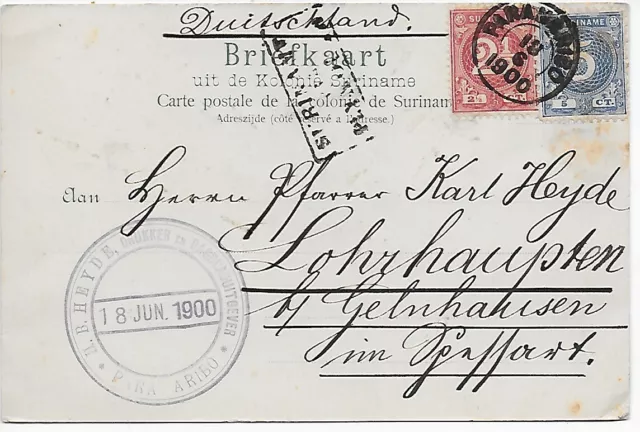 Duitschland.
Briefkaart
uit de Kolonie Suriname
Carte postale de la colonie de Suriname
Adreszijde (côté réservé à l'adresse.)
SURINAME
2½ CT.
SURINAME
5 CT.
PARAMARIBO
18
6
1900
SURINAM
Aan
Herrn Pfarrer Karl Heyde
Lohrhaupten
b/ Gelnhausen
im Spessart.
H. B. HEYDE, DRUKKER EN UITGEVER
18 JUN. 1900
PARAMARIBO